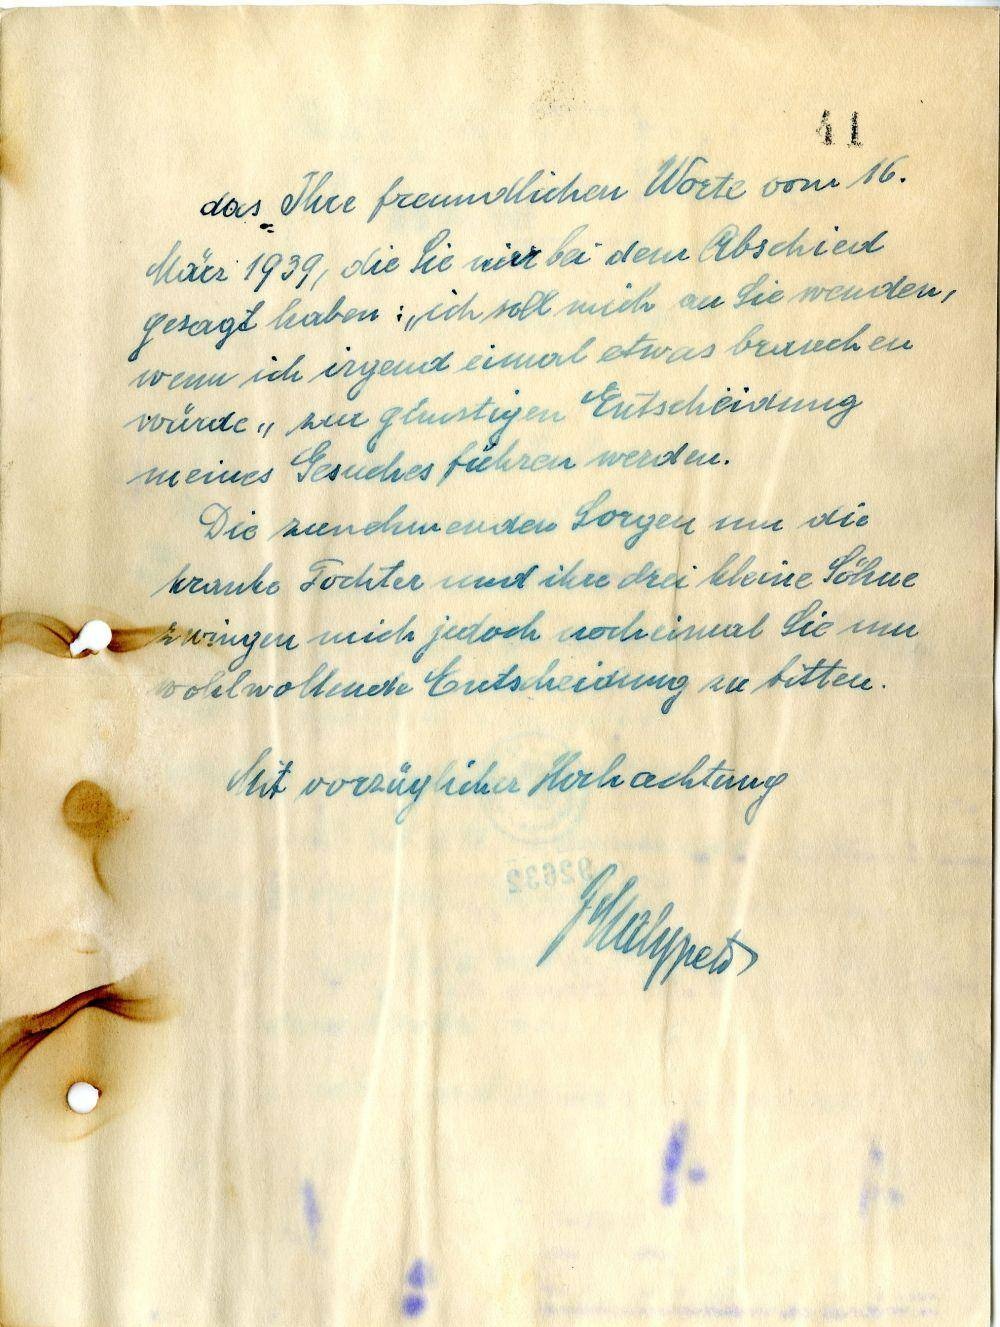 41
das Ihre freundlichen Worte vom 16.
März 1939, die Sie mir bei dem Abschied
gesagt haben: „ich soll mich an Sie wenden,
wenn ich irgend einmal etwas brauchen
würde„ zur günstigen Entscheidung
meines Gesuches führen werden.
Die zunehmenden Sorgen um die
kranke Tochter und ihre drei kleine Söhne
zwingen mich jedoch noch einmal Sie um
wohlwollende Entscheidung zu bitten.
Mit vorzüglicher Hochachtung
92632